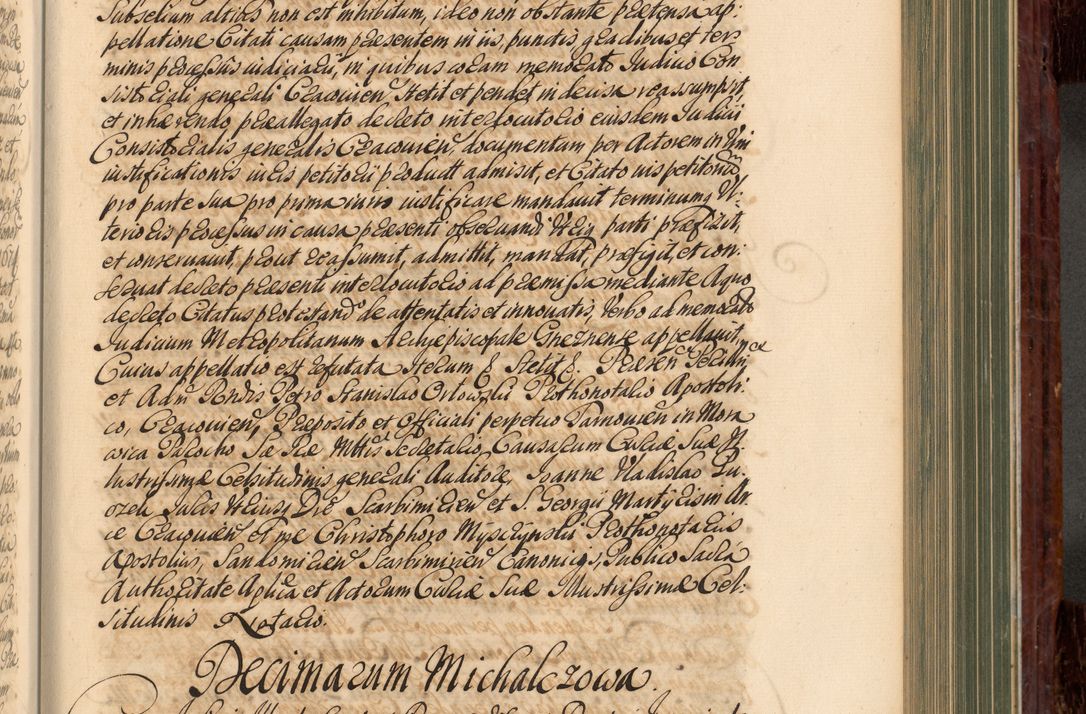 Subselium altius non est inhibitum, ideo non obstante prætensa ap:
pellatione Citati causam præsentem in iis, punctis gradibus et ter
minis processûs iudiciarii, in quibus coram memorato Iudicio Con
sistoriali generali Cracovien̄ stetit et pendet indecisa reassumpsit
et inhærendo præallegato decreto interlocutorio eiusdem Iudicii
Consistorialis generalis Cracovien̄ documentum per Actorem in Vim
iustificationis iuris petitorii productū admisit, et Citato ius petitoriū
pro parte sua pro prima iuris iustificare mandavit terminumq̄ Ul:
terioris processus in causa præsenti observandi Utriq̄ parti præfixit,
et conservavit, prout reassumit, admittit, mandat, præfigit, et con:
servat decreto præsenti interlocutorio ad præmissa mediante A quo
decreto Citatus protestando de attentatis et innovatis, Verbo ad memoratū
Iudicium Metropolitanum Archyepiscopale Gneznense appellavit,
Cuius appellatio est refutata Iterum & stetit &. Præsen̄ Perillri
et Adm̄ Rndis Petro Stanislao Orłowski Prothonotario Apostoli
co, Cracovien̄, Præposito et Officiali perpetuo Tarnovien̄ in Mora
wica Parocho Sæ Ræ Mttis Secretario, Causarum Curiæ Suæ Il
lustrissimæ Celsitudinis generali Auditore, Ioanne Vladislao Lu
Dre Scarbimirien̄ et S. Georgii Martyris in Ar
ce Cracovien̄ Et me Christophoro Myszczynski Prothonotariis
Apostolicis, Sandomirien̄ Scarbimirien̄ Canonicis, Publico Sacra
Authoritate Aplica et Actorum Curiæ Suæ Illustrissimæ Cel:
situdinis Notario.
Decimarum Michalczowa.